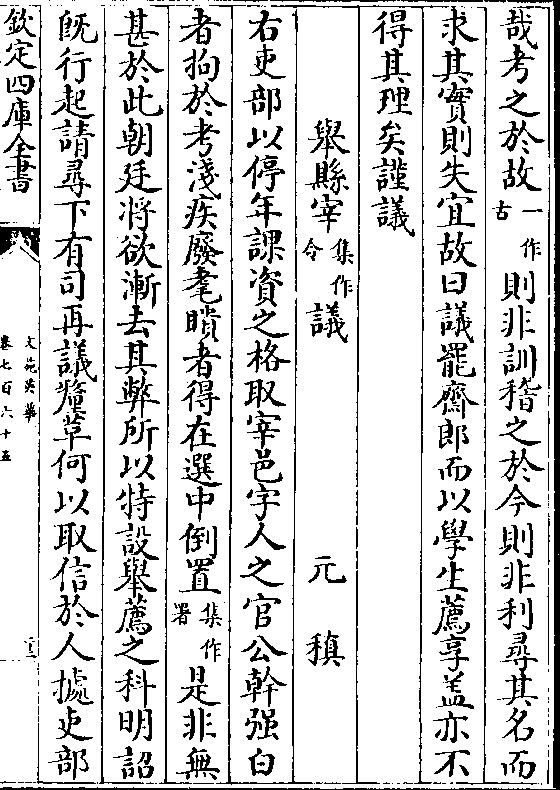 哉考之於故一作古則非訓稽之於今則非利尋其名而
求其實則失宜故曰議罷齋郎而以學生薦享盖亦不
得其理矣謹議
舉縣宰集作令議 元稹
右吏部以停年課資之格取宰邑字人之官公幹强白
者拘於考淺疾廢耄瞶者得在選中倒置集作署是非無
甚於此朝廷將欲漸去其弊所以特設舉薦之科明詔
旣行起請尋下有司再議釐革何以取信於人據吏部
欽定四庫全書
文苑英華
卷七百六十五